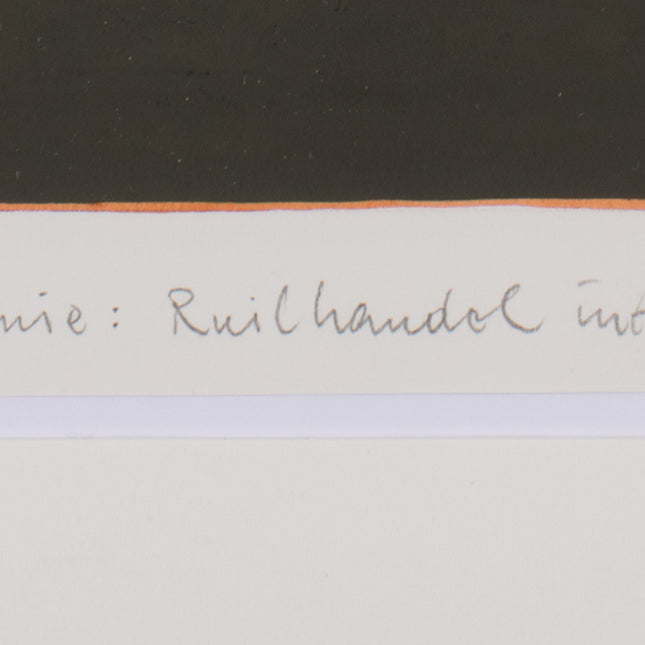 mie: Ruilhandel int